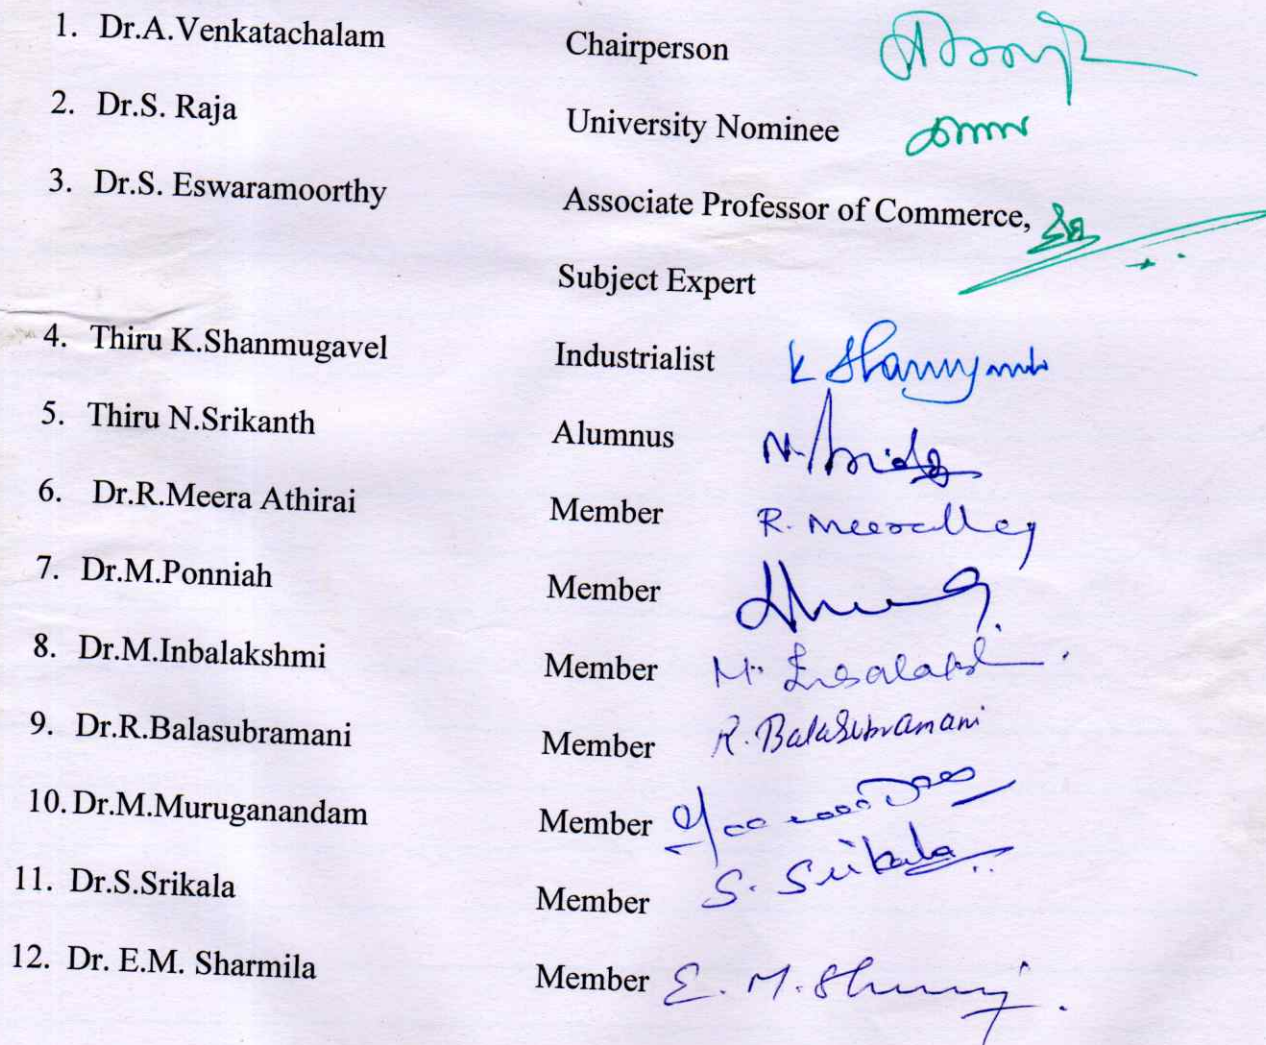 1. Dr.A.Venkatachalam Chairperson
2. Dr.S. Raja University Nominee
3. Dr.S. Eswaramoorthy Associate Professor of Commerce,
Subject Expert
4. Thiru K.Shanmugavel Industrialist K
5. Thiru N.Srikanth Alumnus N.
6. Dr.R.Meera Athirai Member R.
7. Dr.M.Ponniah Member
8. Dr.M.Inbalakshmi Member M.
9. Dr.R.Balasubramani Member R. Balasubramani
10. Dr.M.Muruganandam Member
11. Dr.S.Srikala Member S. Srikala
12. Dr. E.M. Sharmila Member E. M.